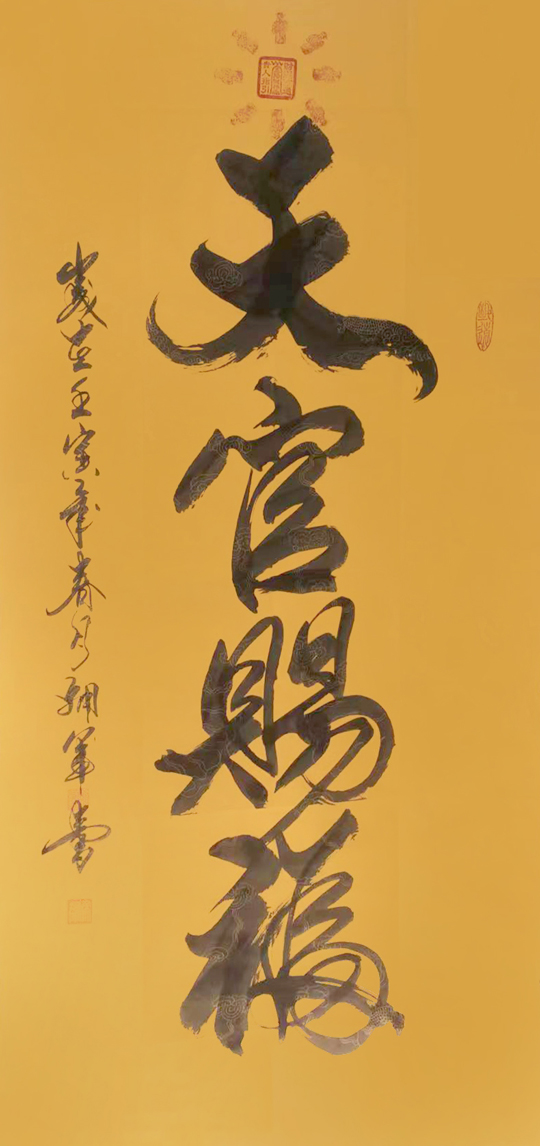 天官賜福
歲在壬寅年春月翔軍書